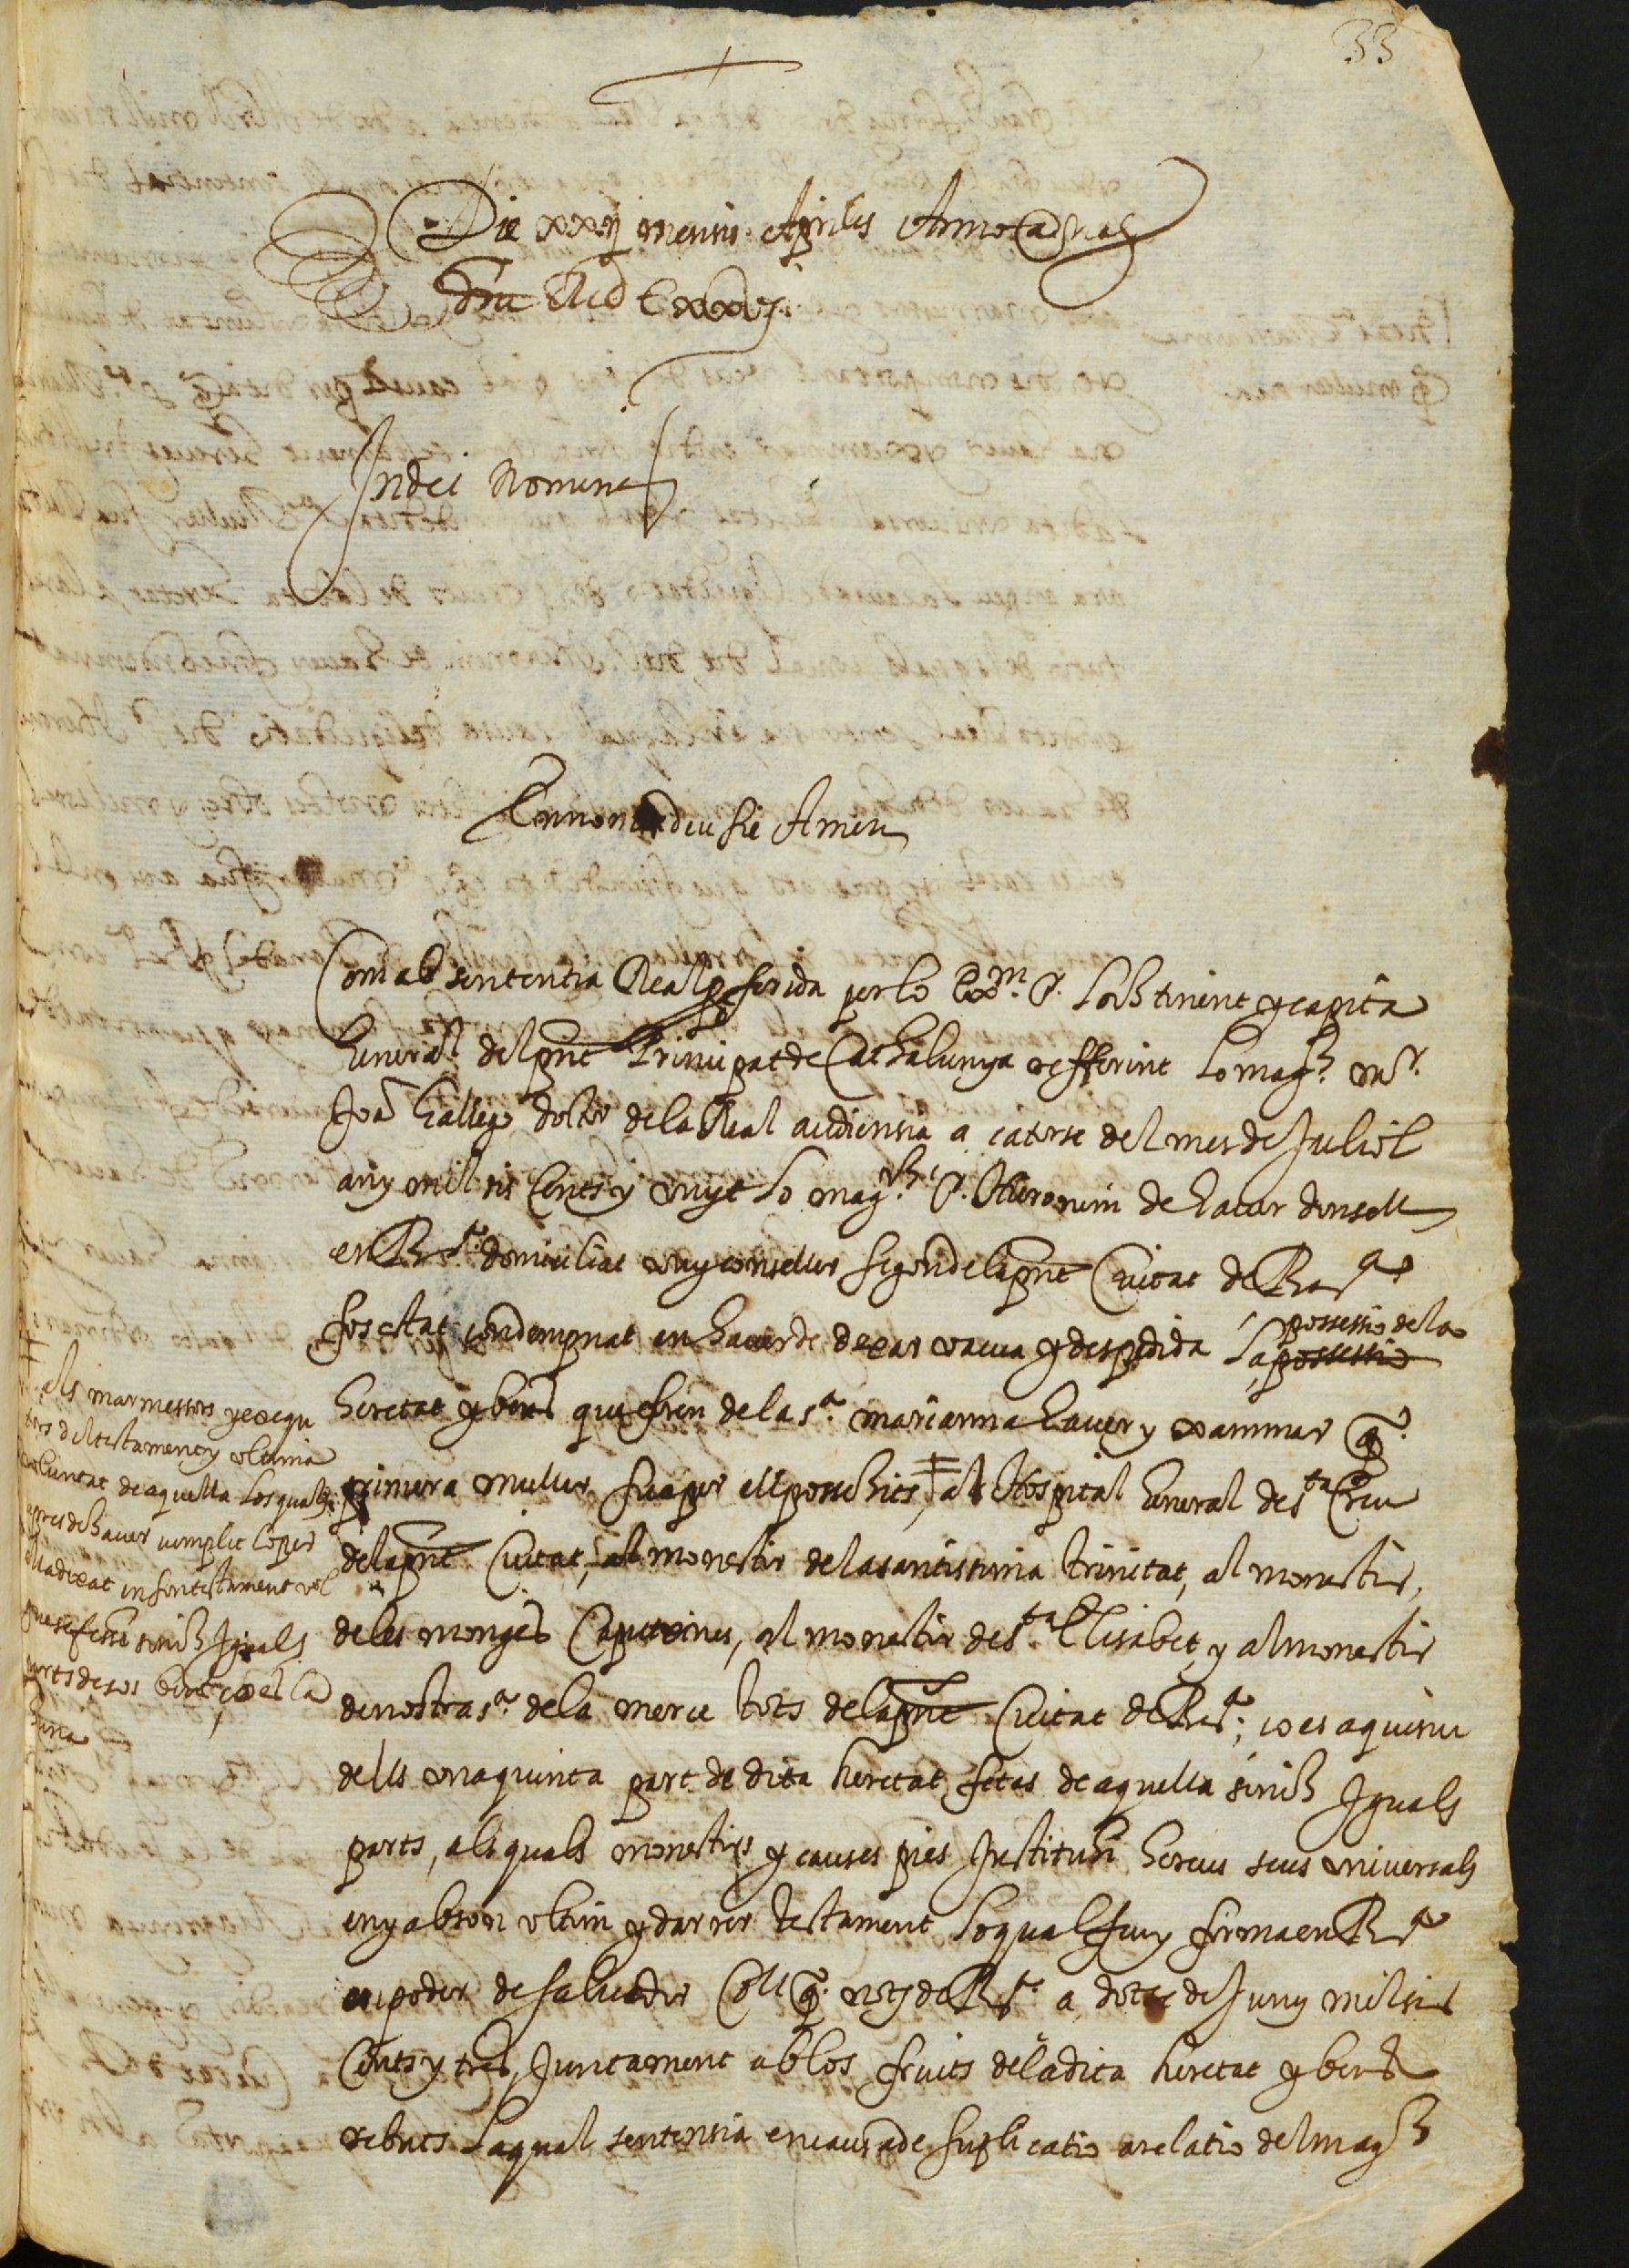 33
Die xxvij mensis Aprilis Anno a Nat.
Dni M D C xxvj.
In dei nomine
En nom de deu sie Amen
Com ab sententia Real proferida per lo Exm. Sr. Lochtinent y capita
General del pnt Principat de Cathalunya refferint lo magch. mr.
Joã Gallego doctor de la Real audiensia a catorse del mes de Juliol
any mil sis Cents y vuyt lo magch. Sr. Hieronim de Gaver donsell
en Bar.na domiciliat vuy conseller segon de la pnt Ciutat de Bar.na
fos estat condempnat en haver de dexar vacua y despedida la possessio possessio de la
heretat y bens qui foren de la s.a marianna Gaver y xammar q.
primera muller sua per ell possehits, ǂ al Hospital General de s.ta Creu
de la pnt Ciutat, al monestir de la santissima trinitat, al monestir
de les monges Caputxines, al monestir de s.ta Elisabet, y al monestir
de nostra s.a de la merce tots de la pnt Ciutat de Bar.na; ço es a quiscu
dells una quinta part de dita heretat fetes de aquella sinch Iguals
parts, als quals monestirs y causes pies Instituhi hereus seus universals
en y ab son ultim y darrer testament lo qual feu y firma en Bar.na
en poder de salvador Coll q. not. de Bar.na a dotse de Juny mil sis
Cents y tres, Juntament ab los fruits de la dita heretat y bens
rebuts la qual sentensia en causa de suplicatio a relatio del magch
ǂ als marmessors y exequ
tors del testament y ultima
voluntat de aquella los quals
apres de haver cumplit lo que
ella dexat en son testament vol
que se fessen sinch Iguals
parts de sos bens, ço es la
una